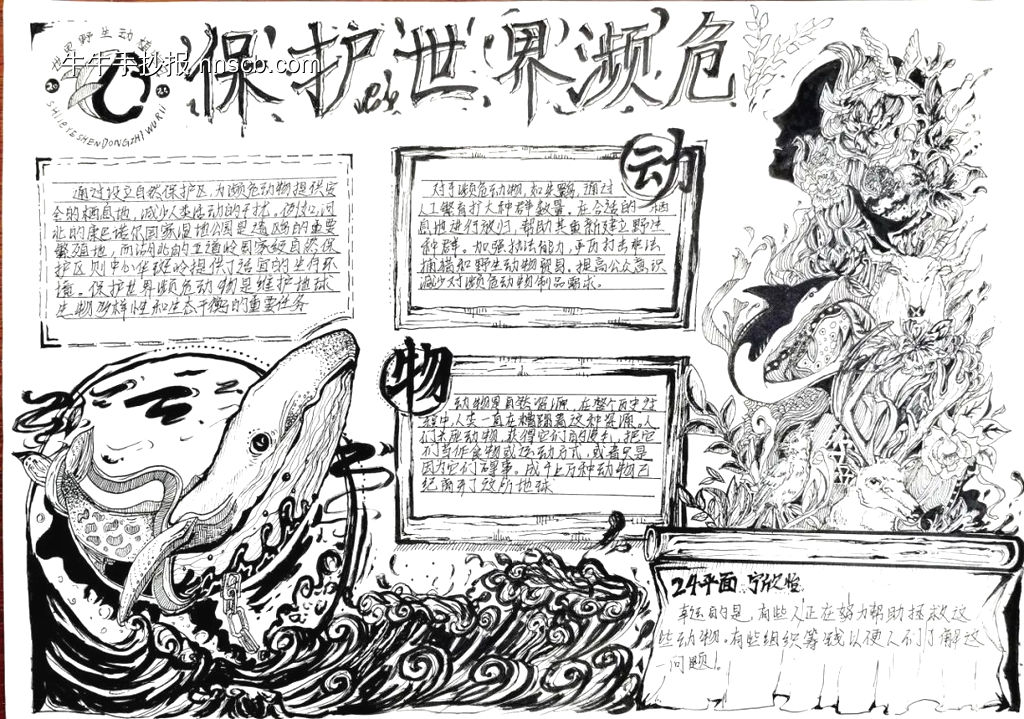 世界野生动物日
牛牛手抄报 nnscb.com
20 25
SHIJIEYESHENDONGZHIWURII
保护世界濒危
动
物
通过设立自然保护区,为濒危动物提供安
全的栖息地,减少人类活动的干扰。例如,河
北的康巴诺尔国家湿地公园是遗鸥的重要
繁殖地,而湖北的五道峡国家级自然保
护区则中华斑羚提供了适宜的生存环
境。保护世界濒危动物是维护地球
生物多样性和生态平衡的重要任务
对于濒危动物,如朱鹮,通过
人工繁育扩大种群数量,在合适的栖
息地进行放归,帮助其重新建立野生
种群。加强执法能力,严厉打击非法
捕猎和野生动物贸易,提高公众意识
减少对濒危动物制品需求。
动物是自然资源,在整个历史过
程中,人类一直在糟蹋着这种资源。人
们杀死动物,获得它们的皮毛,把它
们当作食物或运动方式,或者只是
因为它们碍事。成千上万种动物已
经离开了这所地球
24平面 宁欣怡
幸运的是,有些人正在努力帮助拯救这
些动物。有些组织筹钱以便人们了解这
一问题!